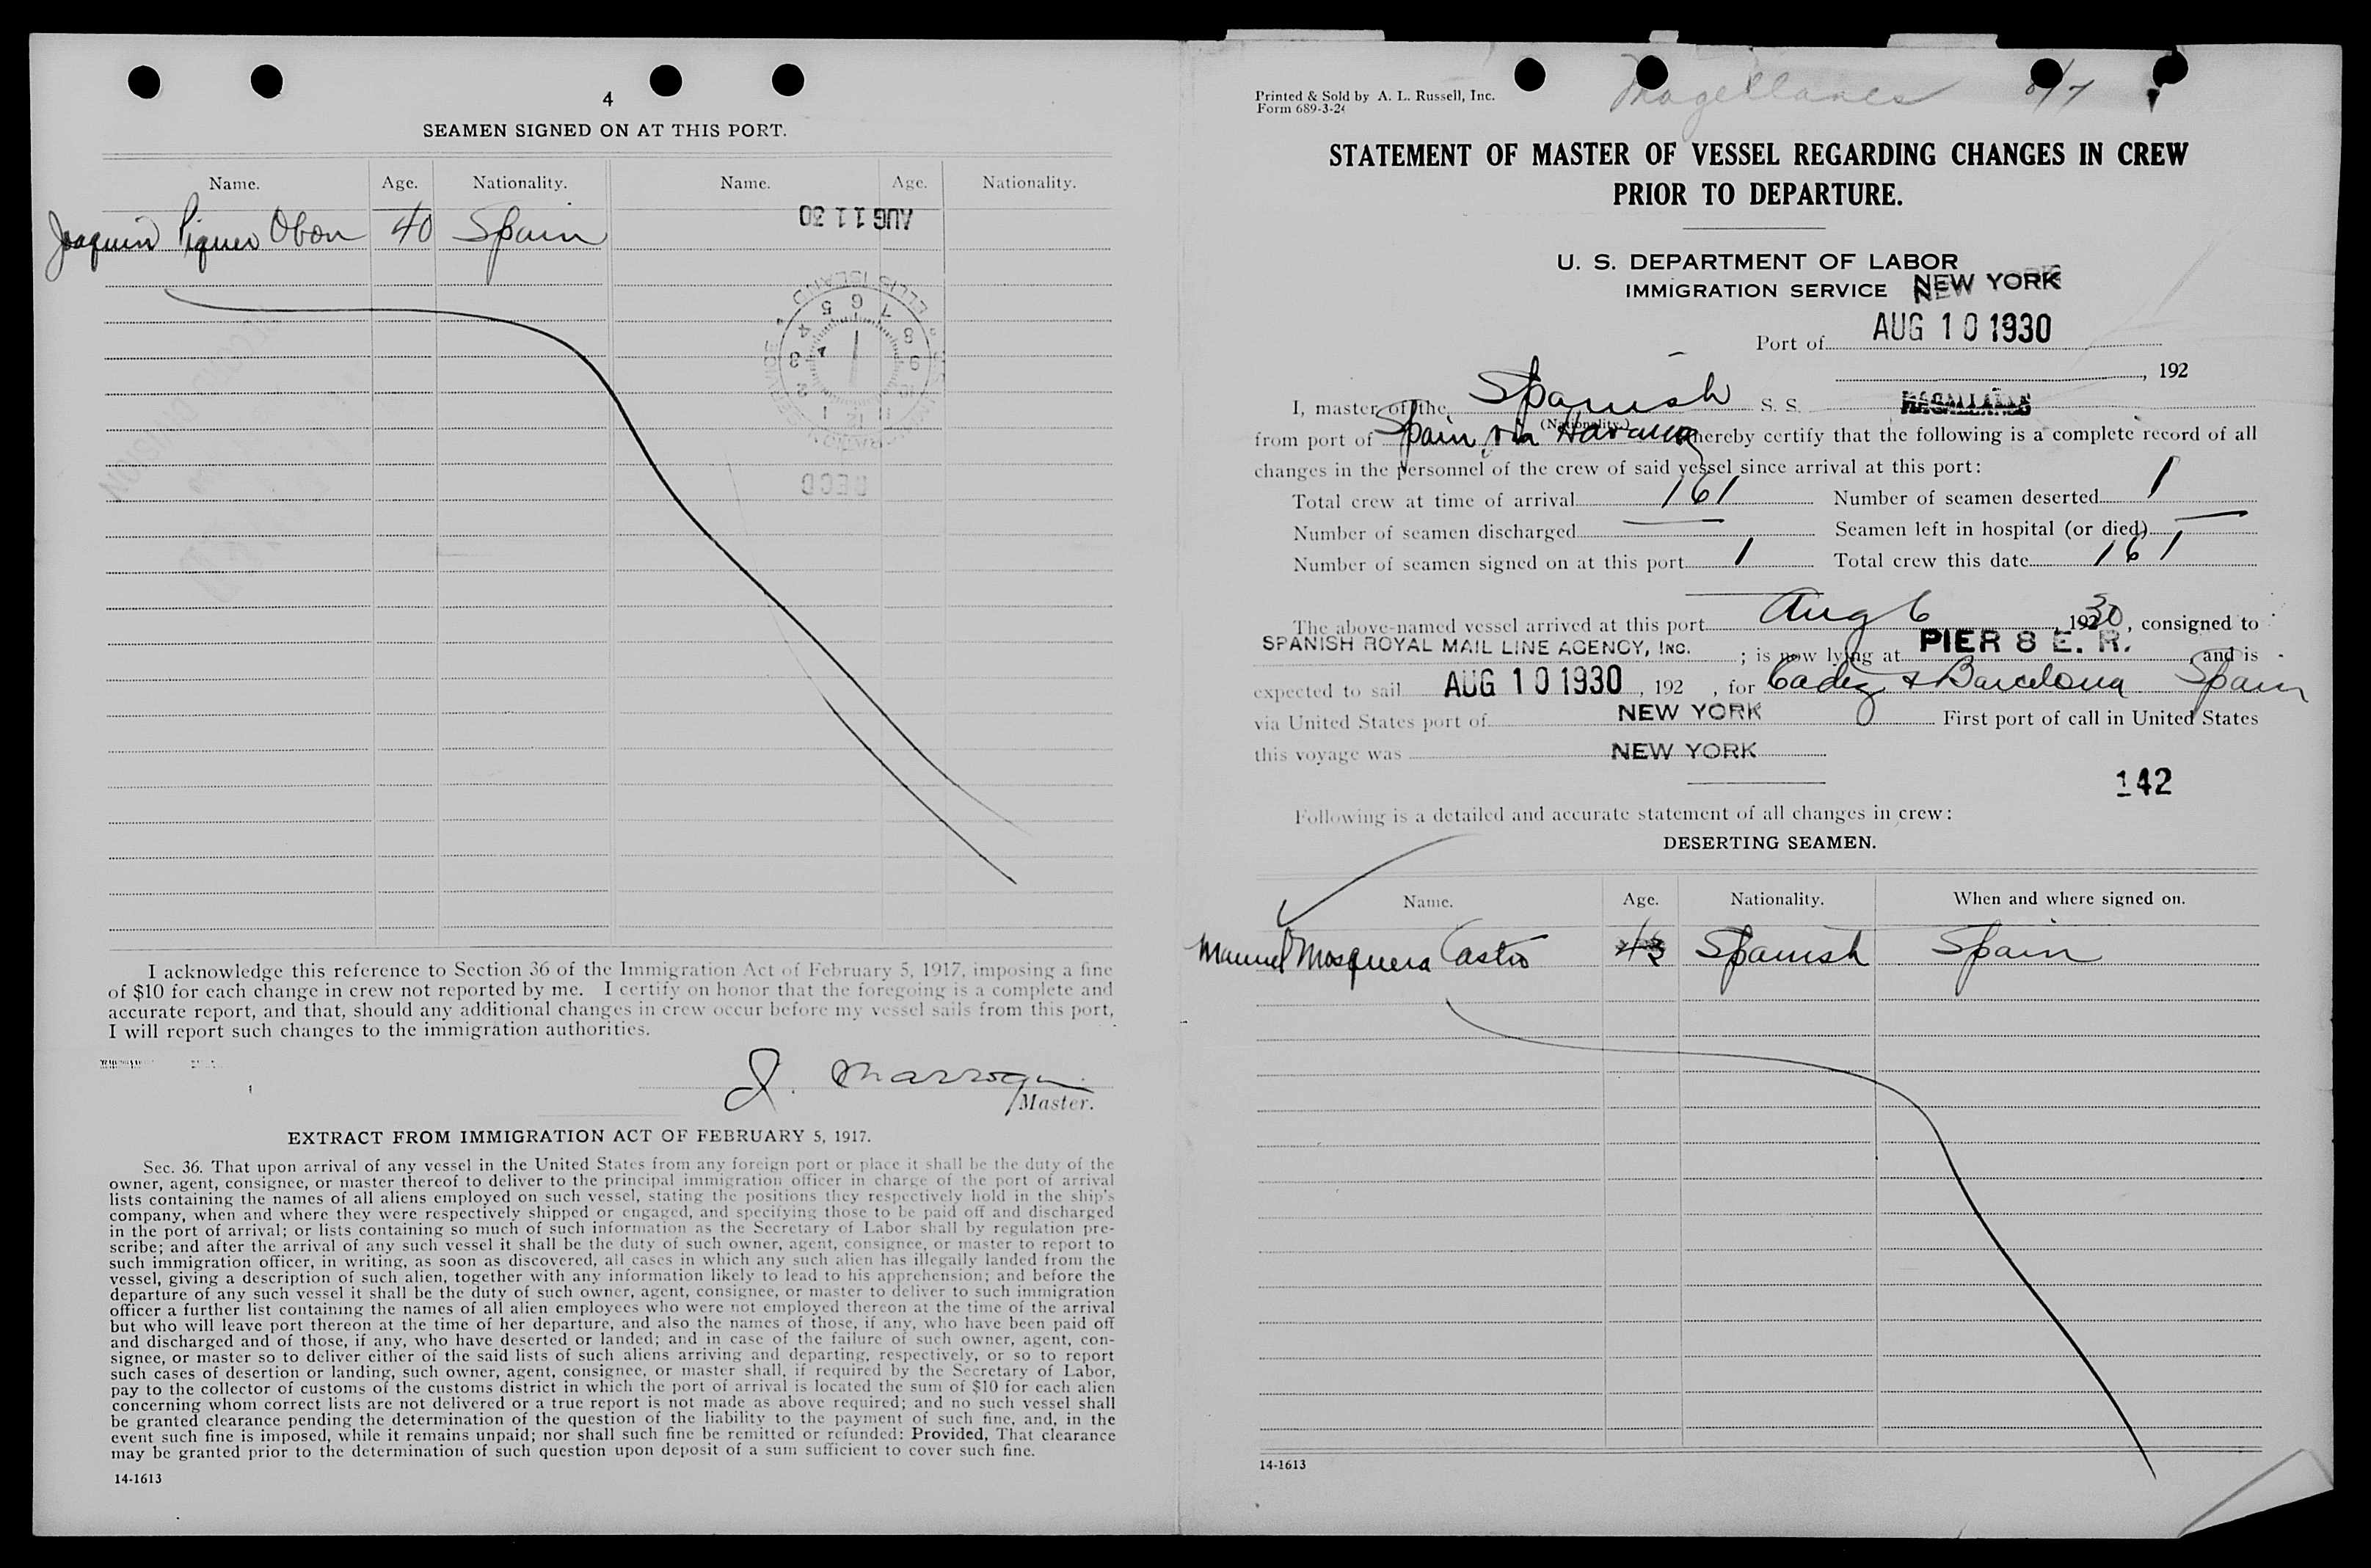 4
SEAMEN SIGNED ON AT THIS PORT.
Name. Age. Nationality. Name. Age. Nationality.
Joaquin Piquer Obon 40 Spain
AUG 11 30
ELLIS ISLAND
RECD
I acknowledge this reference to Section 36 of the Immigration Act of February 5, 1917, imposing a fine
of $10 for each change in crew not reported by me. I certify on honor that the foregoing is a complete and
accurate report, and that, should any additional changes in crew occur before my vessel sails from this port,
I will report such changes to the immigration authorities.
J. Marroqui
Master.
EXTRACT FROM IMMIGRATION ACT OF FEBRUARY 5, 1917.
Sec. 36. That upon arrival of any vessel in the United States from any foreign port or place it shall be the duty of the
owner, agent, consignee, or master thereof to deliver to the principal immigration officer in charge of the port of arrival
lists containing the names of all aliens employed on such vessel, stating the positions they respectively hold in the ship's
company, when and where they were respectively shipped or engaged, and specifying those to be paid off and discharged
in the port of arrival; or lists containing so much of such information as the Secretary of Labor shall by regulation pre-
scribe; and after the arrival of any such vessel it shall be the duty of such owner, agent, consignee, or master to report to
such immigration officer, in writing, as soon as discovered, all cases in which any such alien has illegally landed from the
vessel, giving a description of such alien, together with any information likely to lead to his apprehension; and before the
departure of any such vessel it shall be the duty of such owner, agent, consignee, or master to deliver to such immigration
officer a further list containing the names of all alien employees who were not employed thereon at the time of the arrival
but who will leave port thereon at the time of her departure, and also the names of those, if any, who have been paid off
and discharged and of those, if any, who have deserted or landed; and in case of the failure of such owner, agent, con-
signee, or master so to deliver either of the said lists of such aliens arriving and departing, respectively, or so to report
such cases of desertion or landing, such owner, agent, consignee, or master shall, if required by the Secretary of Labor,
pay to the collector of customs of the customs district in which the port of arrival is located the sum of $10 for each alien
concerning whom correct lists are not delivered or a true report is not made as above required; and no such vessel shall
be granted clearance pending the determination of the question of the liability to the payment of such fine, and, in the
event such fine is imposed, while it remains unpaid; nor shall such fine be remitted or refunded: Provided, That clearance
may be granted prior to the determination of such question upon deposit of a sum sufficient to cover such fine.
14-1613
Printed & Sold by A. L. Russell, Inc.
Form 689-3-2
Magellanes 8/7
STATEMENT OF MASTER OF VESSEL REGARDING CHANGES IN CREW
PRIOR TO DEPARTURE.
U. S. DEPARTMENT OF LABOR
IMMIGRATION SERVICE NEW YORK
Port of AUG 10 1930
, 192
I, master of the Spanish S. S. MAGALLANES
(Nationality.)
from port of Spain via Havana hereby certify that the following is a complete record of all
changes in the personnel of the crew of said vessel since arrival at this port:
Total crew at time of arrival 161 Number of seamen deserted 1
Number of seamen discharged — Seamen left in hospital (or died) —
Number of seamen signed on at this port 1 Total crew this date 161
The above-named vessel arrived at this port Aug 6 1930, consigned to
SPANISH ROYAL MAIL LINE AGENCY, INC. ; is now lying at PIER 8 E. R. and is
expected to sail AUG 10 1930, 192 , for Cadiz & Barcelona Spain
via United States port of NEW YORK First port of call in United States
this voyage was NEW YORK
142
Following is a detailed and accurate statement of all changes in crew:
DESERTING SEAMEN.
Name. Age. Nationality. When and where signed on.
Manuel Mosquera Castro 43 Spanish Spain
14-1613